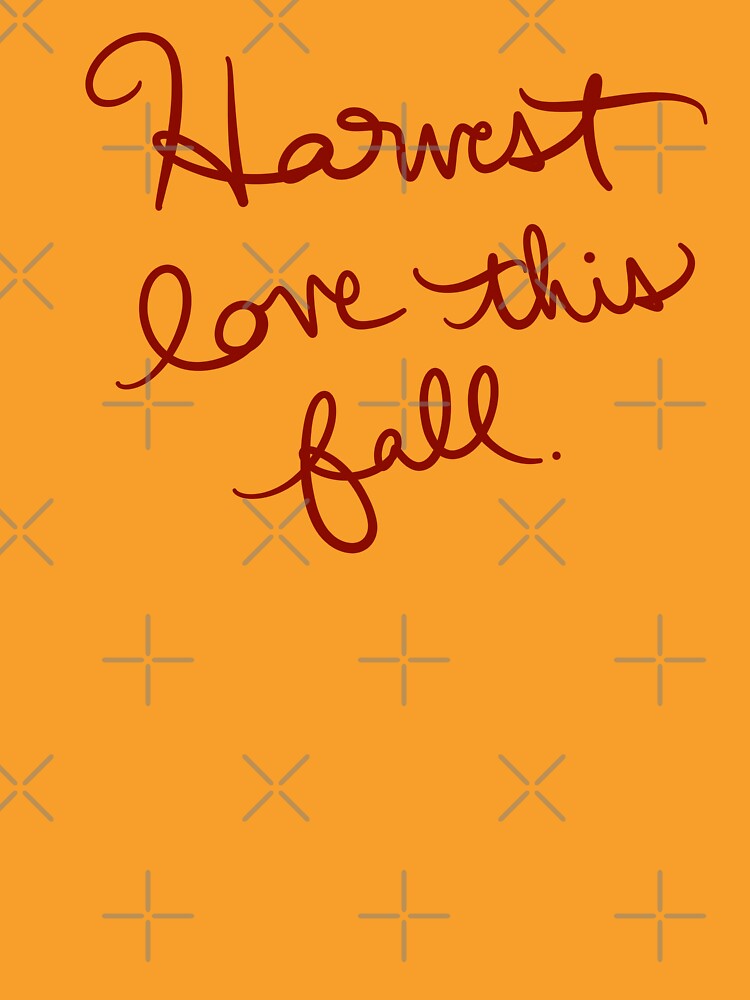 Harvest
love this
fall.